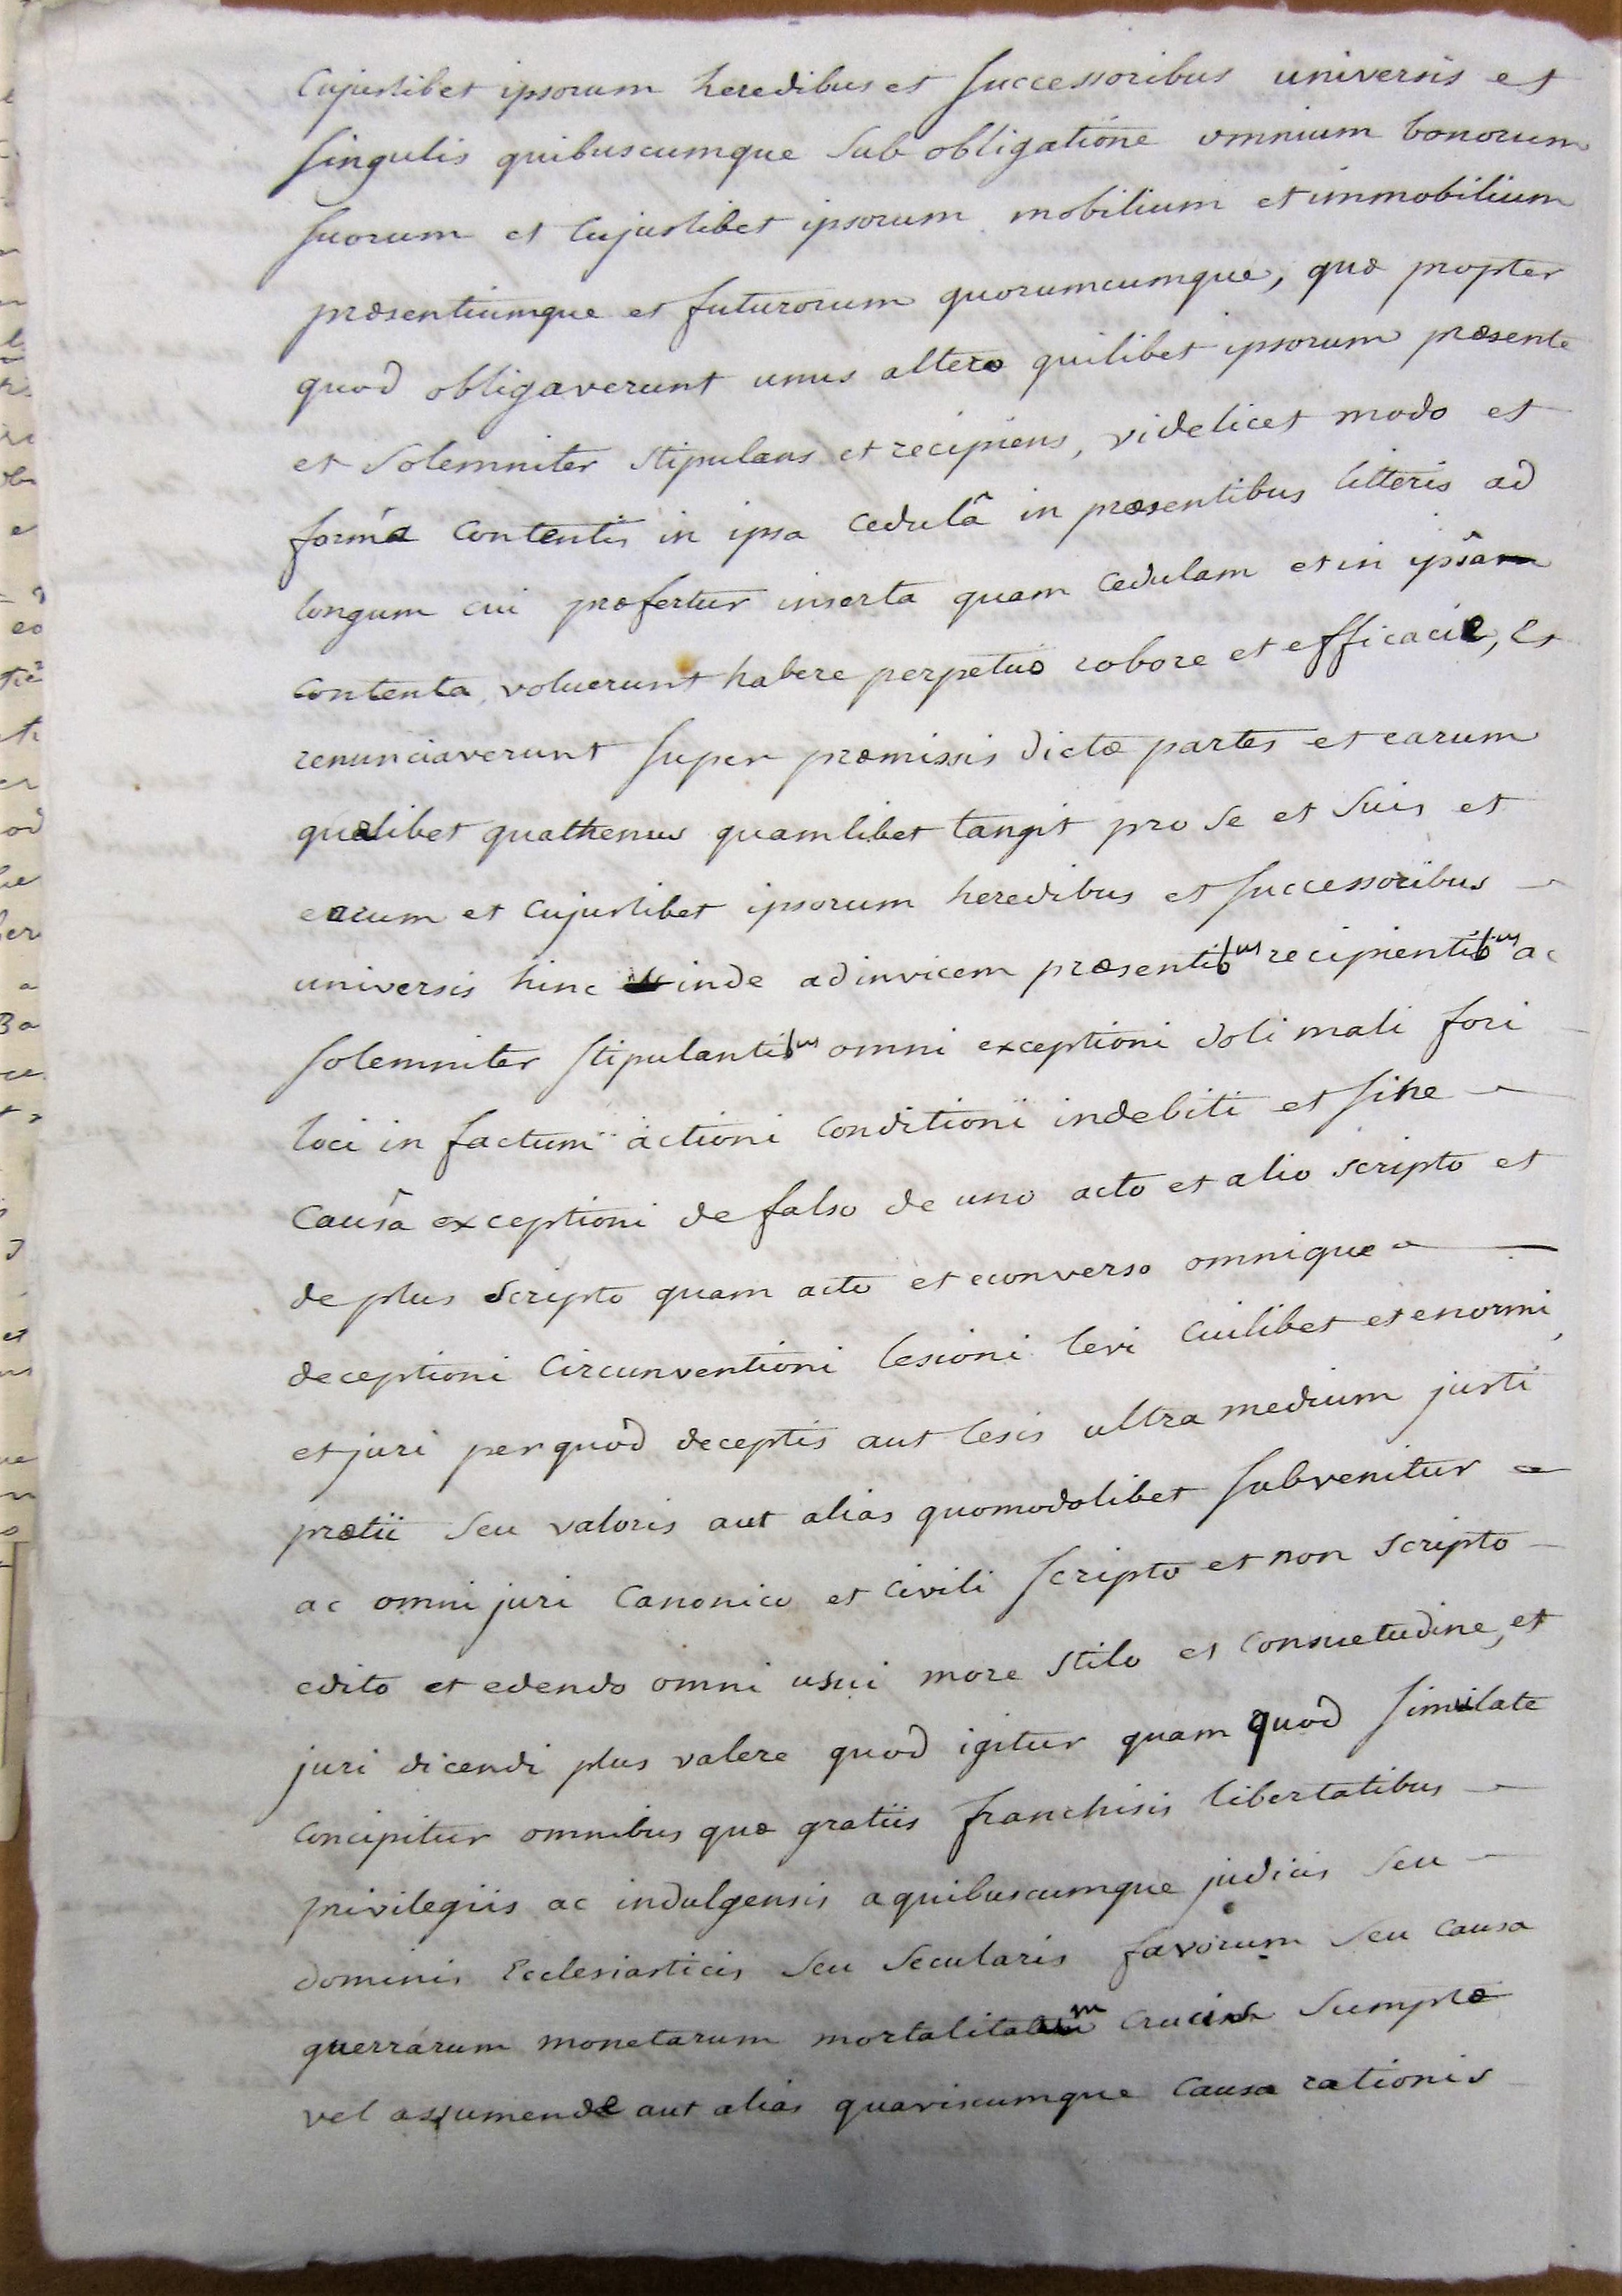 Cujuslibet ipsorum heredibus et successoribus universis et
singulis quibuscumque sub obligatione omnium bonorum
suorum et Cujuslibet ipsorum mobilium et immobilium
præsentiumque et futurorum quorumcumque, quæ propter
quod obligaverunt unus altero quilibet ipsorum præsente
et Solemniter stipulans et recipiens, videlicet modo et
forma Contentis in ipsa Cedulâ in præsentibus litteris ad
longum cui præfertur inserta quam Cedulam et in ipsâ
contenta voluerunt habere perpetuo robore et efficacie, Et
renunciaverunt super præmissis dictæ partes et earum
quælibet quathenus quamlibet tangit pro se et Suis et
earum et Cujuslibet ipsorum heredibus et successoribus
universis hinc inde adinvicem præsentibus recipientibus ac
solemniter stipulantibus omni exceptioni doli mali fori
loci in factum actioni Conditioni indebiti et sine
Causâ exceptioni de falso de uno acto et alio scripto et
de plus Scripto quam acto et econverso omnique
deceptioni Circunventioni lesioni levi Cuilibet et enormi,
et juri per quod deceptis aut lesis ultra medium justi
prætii Seu valoris aut alias quomodolibet subvenitur
ac omni juri Canonico et Civili scripto et non Scripto
edito et edendo omni usui more Stilo et Consuetudine, et
juri dicendi plus valere quod igitur quam quod similate
Concipitur omnibus quæ gratiis franchisis libertatibus
privilegiis ac indulgensis a quibuscumque judicis Seu
dominis Ecclesiasticis Seu Secularis favorum Seu Causa
guerrarum monetarum mortalitatum Crucis Sumptæ
vel assumende aut alias quaviscumque Causa rationis